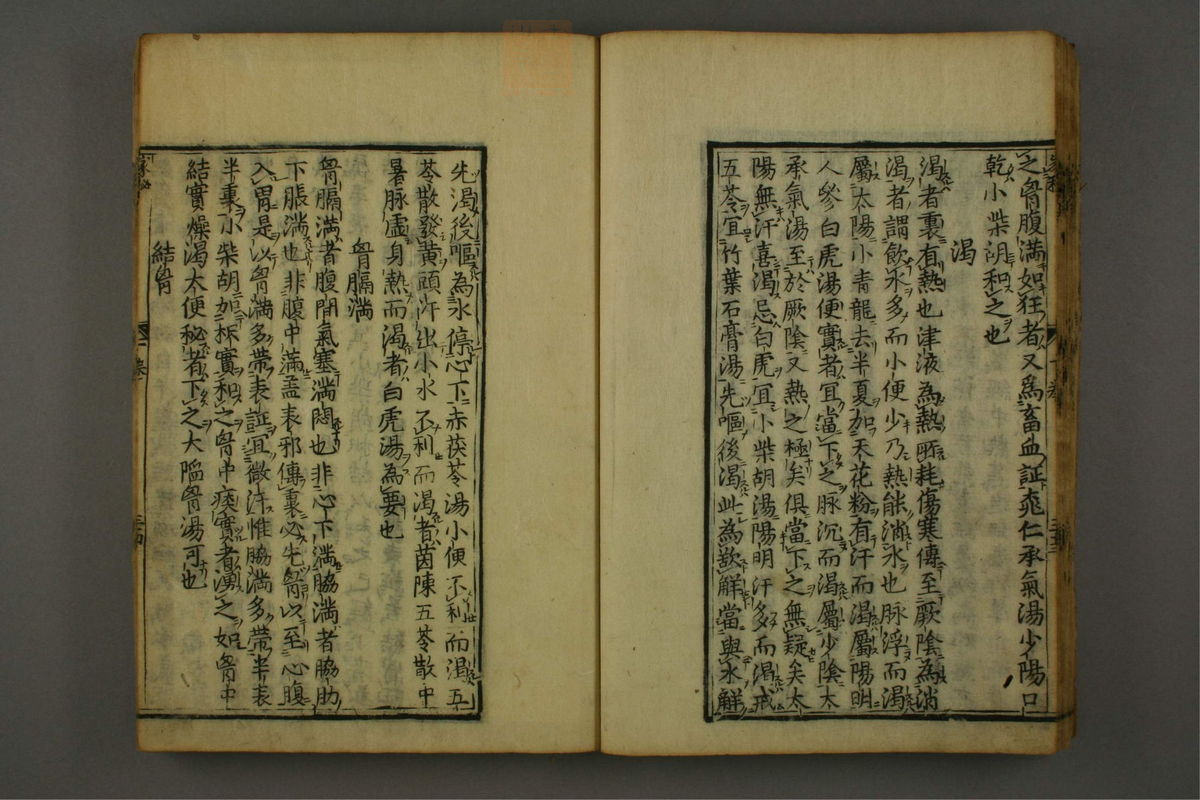 之胷腹満如狂者又為畜血証桃仁承氣湯少陽口
乾小柴胡和之也
渇
渇者裏有熱也津液為熱所耗傷寒傳至厥陰為消
渇者謂飲水多而小便少乃熱能消水也脉浮而渇
屬太陽小青龍去半夏加天花粉有汗而渇屬陽明
人參白虎湯便實者宜當下之脉沉而渇屬少陰太
承氣湯至於厥陰又熱之極矣俱當下之無疑矣太
陽無汗喜渇忌白虎宜小柴胡湯陽明汗多而渇戒
五苓宜竹葉石膏湯先嘔後渇此為欲觧當與水觧
先渇後嘔為水停心下赤茯苓湯小便不利而渇五
苓散發黄頭汗出小水不利而渇者茵陳五苓散中
暑脉虚身熱而渇者白虎湯為要也
胷膈満
胷膈満者腹間氣塞満悶也非心下満脇満者脇肋
下脹満也非腹中滿盖表邪傳裏必先胷以至心腹
入胃是以胷満多帶表証宜微汗惟脇満多帶半表
半裏小柴胡加枳實和之胷中痰實者湧之如胷中
結實燥渇大便秘者下之大陥胷湯可也
結胷